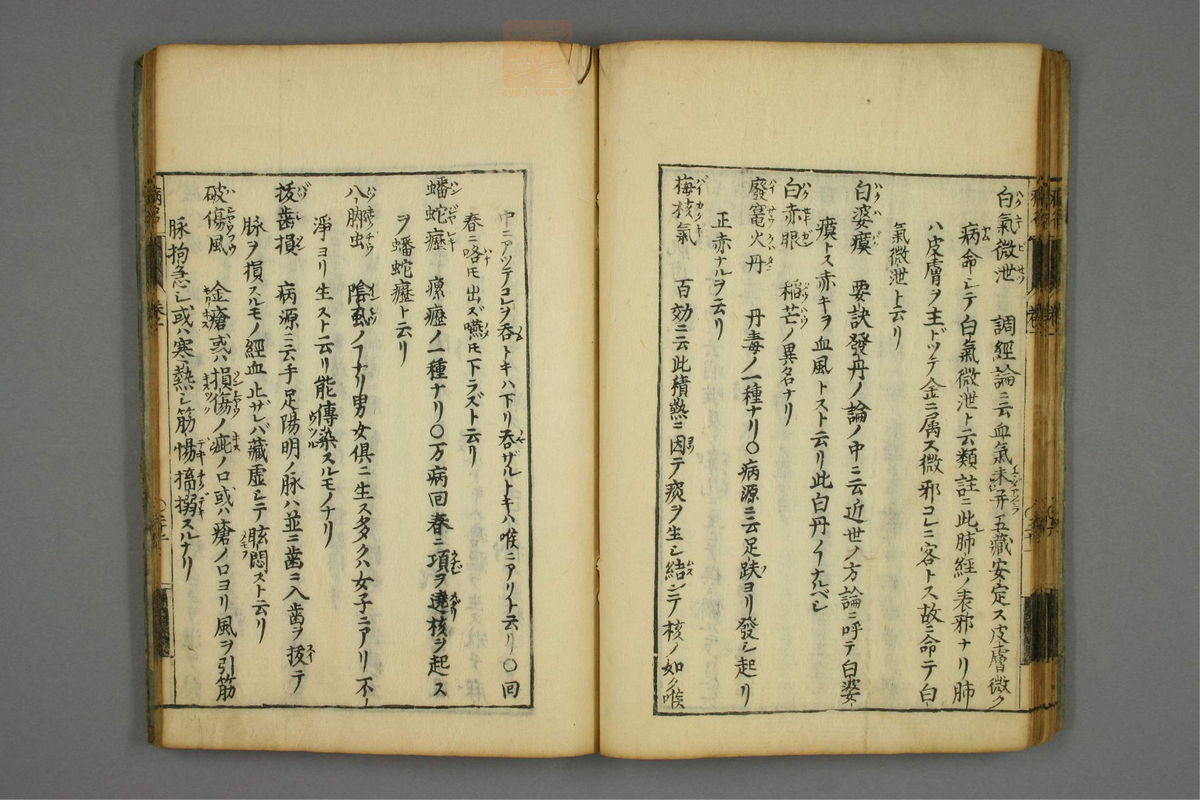 白氣微泄　調經論ニ云血氣未并五藏安定ス皮膚微ク
病命シテ白氣微泄ト云類註ニ此肺經ノ表邪ナリ肺
ハ皮膚ヲ主ドツテ金ニ属ス微邪コレニ客トス故ニ命テ白
氣微泄ト云リ
白婆瘼　要訣發丹ノ論ノ中ニ云近世ノ方論ニ呼テ白婆
瘼トス赤キヲ血風トスト云リ此白丹ノ𪜈ナルベシ
白赤眼　稲芒ノ異名ナリ
廢竈火丹　丹毒ノ一種ナリ○病源ニ云足趺ヨリ發シ起リ
正赤ナルヲ云リ
梅核氣　百効ニ云此積熱ニ因テ痰ヲ生シ結シテ核ノ如ク喉
中ニアツテコレヲ呑トキハ下リ呑ザルトキハ喉ニアリト云リ○回
春ニ咯𪜈出ズ嚥𪜈下ラズト云リ
蟠蛇癧　瘰癧ノ一種ナリ○万病回春ニ項ヲ遶核ヲ起ス
ヲ蟠蛇癧ト云リ
八䘌虫　陰虱ノ𪜈ナリ男女俱ニ生ス多クハ女子ニアリ不
淨ヨリ生スト云リ能傳染スルモノナリ
拔歯損　病源ニ云手足陽明ノ脉ハ並ニ歯ニ入歯ヲ拔テ
脉ヲ損スルモノ經血止ザレバ藏虚シテ眩悶ズト云リ
破傷風　金瘡或ハ損傷ノ疵ノ口或ハ瘡ノ口ヨリ風ヲ引筋
脉拘急シ或ハ寒熱シ筋惕搐搦スルナリ